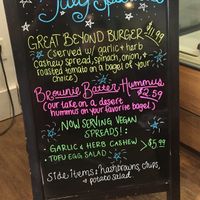 July Specials
GREAT BEYOND BURGER $11.99
(served w/ garlic + herb
cashew spread, spinach, onion, +
roasted tomato on a bagel of your
choice)
Brownie Batter Hummus $2.59
(our take on a dessert
hummus on your favorite bagel)
NOW SERVING VEGAN
SPREADS!:
- GARLIC + HERB CASHEW > $5.99
- TOFU EGG SALAD
Side items: hashbrowns, chips,
+ potato salad